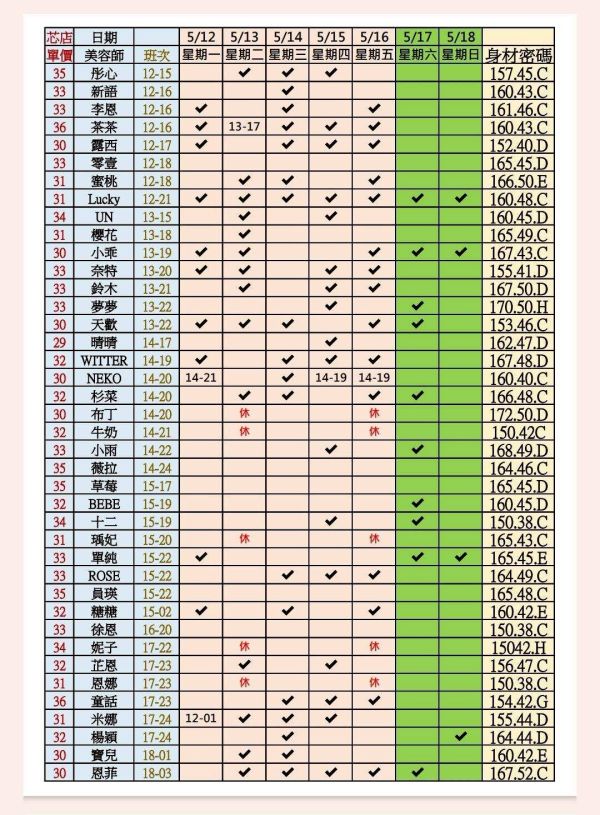 芯店 日期 5/12 5/13 5/14 5/15 5/16 5/17 5/18
單價 美容師 班次 星期一 星期二 星期三 星期四 星期五 星期六 星期日 身材密碼
35 彤心 12-15 ✔ ✔ ✔ 157.45.C
33 新語 12-16 ✔ 160.43.C
33 李恩 12-16 ✔ ✔ ✔ 161.46.C
36 茶茶 12-16 ✔ 13-17 ✔ ✔ ✔ 160.43.C
30 露西 12-17 ✔ ✔ ✔ ✔ 152.40.D
33 零壹 12-18 165.45.D
31 蜜桃 12-18 ✔ ✔ ✔ 166.50.E
31 Lucky 12-21 ✔ ✔ ✔ ✔ ✔ ✔ ✔ 160.48.C
34 UN 13-15 ✔ ✔ 160.45.D
31 櫻花 13-18 ✔ 165.49.C
30 小乖 13-19 ✔ ✔ ✔ ✔ ✔ 167.43.C
33 奈特 13-20 ✔ ✔ ✔ ✔ 155.41.D
33 鈴木 13-21 ✔ ✔ ✔ 167.50.D
33 夢夢 13-22 ✔ ✔ 170.50.H
30 天歡 13-22 ✔ ✔ ✔ ✔ ✔ 153.46.C
29 晴晴 14-17 ✔ 162.47.D
32 WITTER 14-19 ✔ ✔ ✔ ✔ 167.48.D
30 NEKO 14-20 14-21 ✔ 14-19 14-19 160.40.C
32 杉菜 14-20 ✔ ✔ ✔ ✔ 166.48.C
30 布丁 14-20 休 休 172.50.D
32 牛奶 14-21 休 休 150.42C
33 小雨 14-22 ✔ ✔ 168.49.D
35 薇拉 14-24 164.46.C
35 草莓 15-17 165.45.D
32 BEBE 15-19 ✔ 160.45.D
34 十二 15-19 ✔ ✔ 150.38.C
31 瑀妃 15-20 休 休 165.43.C
33 單純 15-22 ✔ ✔ ✔ 165.45.E
33 ROSE 15-22 ✔ ✔ ✔ 164.49.C
35 員瑛 15-22 165.48.C
32 糖糖 15-02 ✔ ✔ ✔ 160.42.E
33 徐恩 16-20 150.38.C
34 妮子 17-22 休 休 15042.H
32 芷恩 17-23 ✔ ✔ 156.47.C
31 恩娜 17-23 休 休 150.38.C
36 童話 17-23 ✔ ✔ ✔ 154.42.G
31 米娜 17-24 12-01 ✔ ✔ ✔ 155.44.D
32 楊穎 17-24 ✔ ✔ 164.44.D
30 寶兒 18-01 ✔ ✔ 160.42.E
30 恩菲 18-03 ✔ ✔ ✔ ✔ ✔ 167.52.C